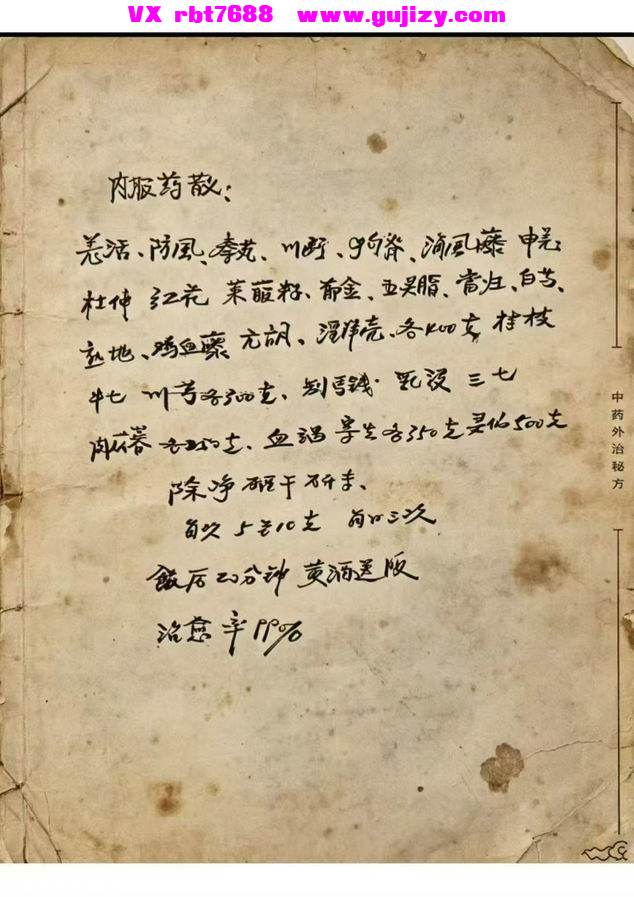 VX rbt7688 www.gujizy.com
内服药散:
羌活、防風、秦艽、川断、狗脊、海風藤
杜仲 红花 莱菔籽、郁金、五灵脂、當归、白芍、
熟地、鸡血藤 元胡、各400克 桂枝
牛七 川芎各300克、制馬钱 乳没 三七
肉苁蓉 各250克、血竭 寄生各350克 500克
除净 晒干 研末、
每次 5至10克 每日三次
飯后20分钟 黄酒送服
治愈率99%
中药外治秘方